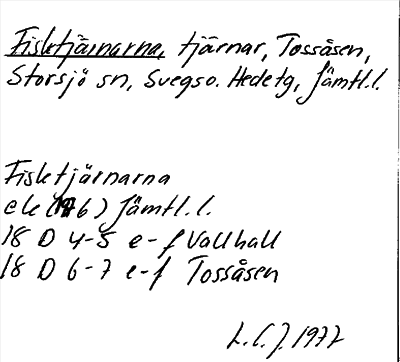 Fisktjärnarna, tjärnar, Tossåsen,
Storsjö sn, Svegso. Hedetg, Jämtl.l.
Fisktjärnarna
ek (76) Jämtl.l.
18 D 4-5 e-f Vallhall
18 D 6-7 e-f Tossåsen
L.C.J. 1977